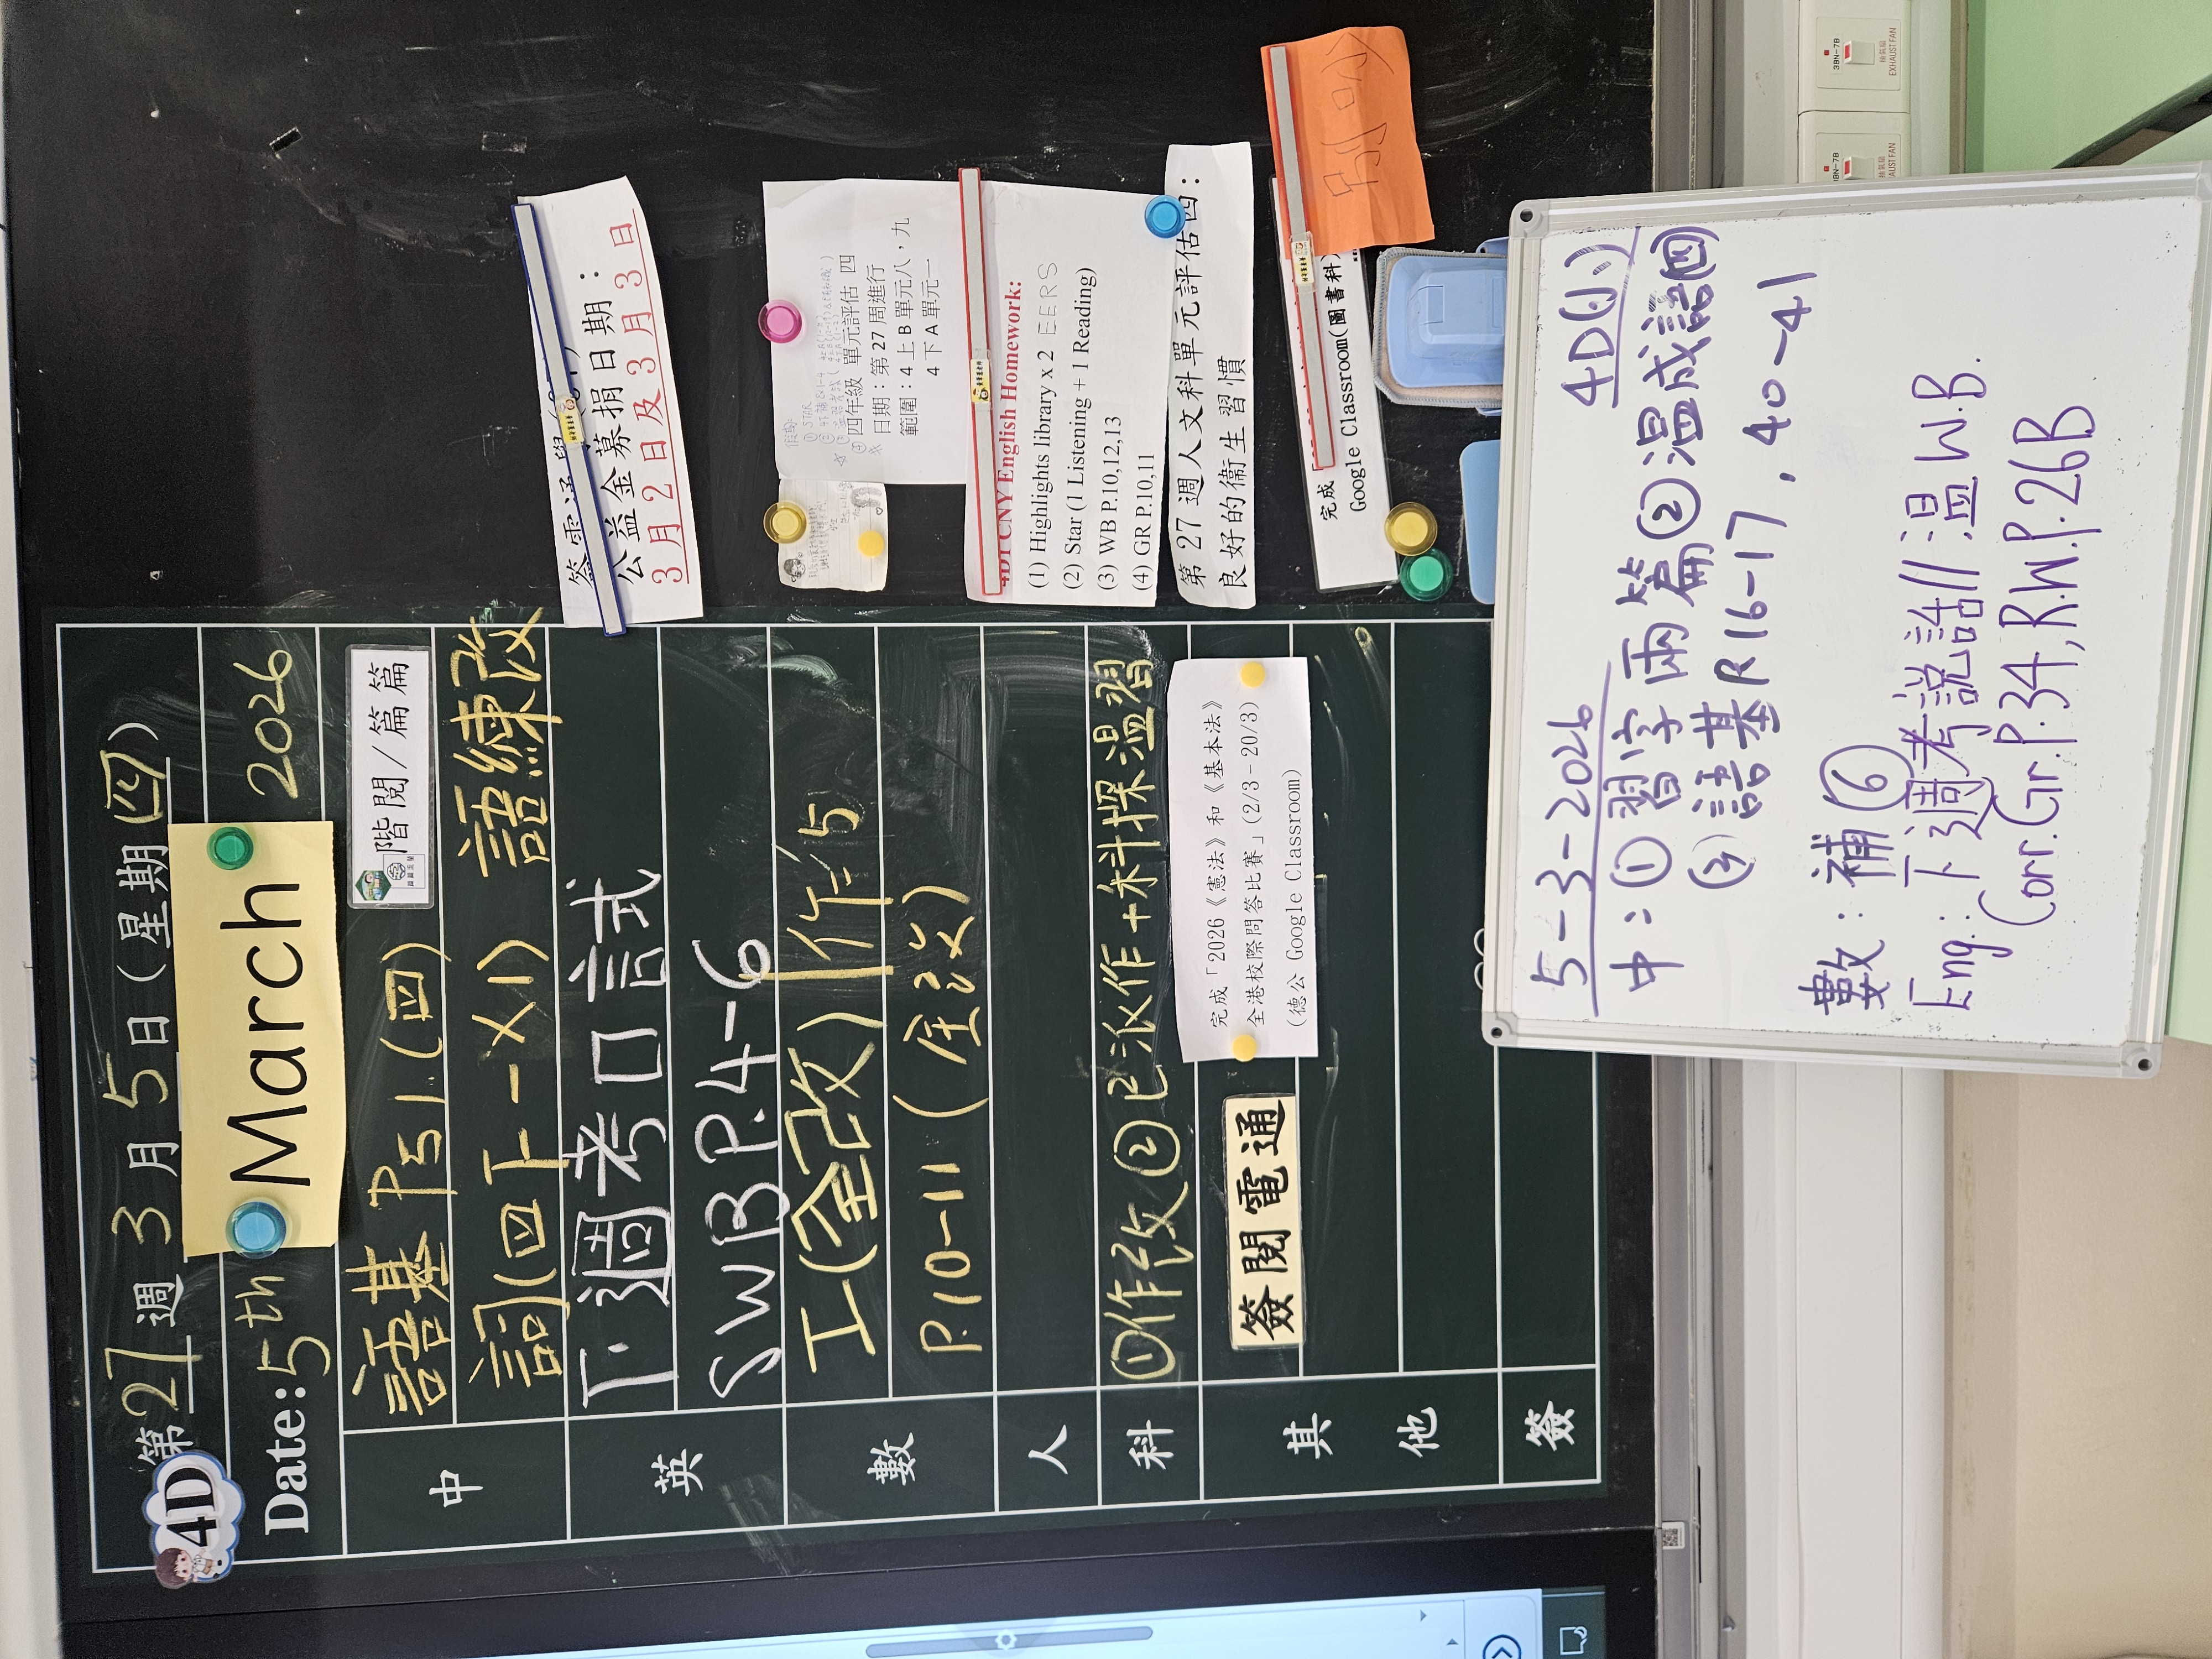 4D
第27週 3月5日(星期四)
Date: 5th March 2026
中
語基 P51 (四)
階閱/篇篇
詞(四下一X1) 語練改
英
下週考口試
SWB P.4-6
數
工(全改) 作5
P.10-11 (全改)
人
科
①作改②已派作+科探溫習
其他
簽閱電通
完成「2026《憲法》和《基本法》
全港校際問答比賽」(2/3-20/3)
(德公 Google Classroom)
簽
公益金募捐日期:
3月2日及3月3日
四年級 單元評估 四
日期:第27周進行
範圍:4上B單元八,九
4下A單元一
4D1 CNY English Homework:
(1) Highlights library x 2 EERS
(2) Star (1 Listening + 1 Reading)
(3) WB P.10,12,13
(4) GR P.10,11
第27週人文科單元評估四:
良好的衞生習慣
完成
Google Classroom(圖書科)
5-3-2026 4D(小)
中:①習字兩篇②溫成語(四)
③語基R16-17,40-41
數:補⑥
Eng: 下週考説話//溫W.B.
Corr.Gr.P.34,R.W.P.26B
3BN-7B
抽氣扇
EXHAUST FAN
3BN-7B
抽氣扇
EXHAUST FAN